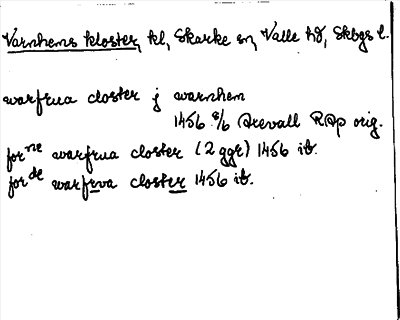 Varnhems kloster, kl, Skarke sn, Valle hd, Skbgs l.
warfrua closter j warnhem
1456 8/6 Arevall RAp orig.
forne warfrua closter (2 ggr) 1456 ib.
forde warfrva closter 1456 ib.